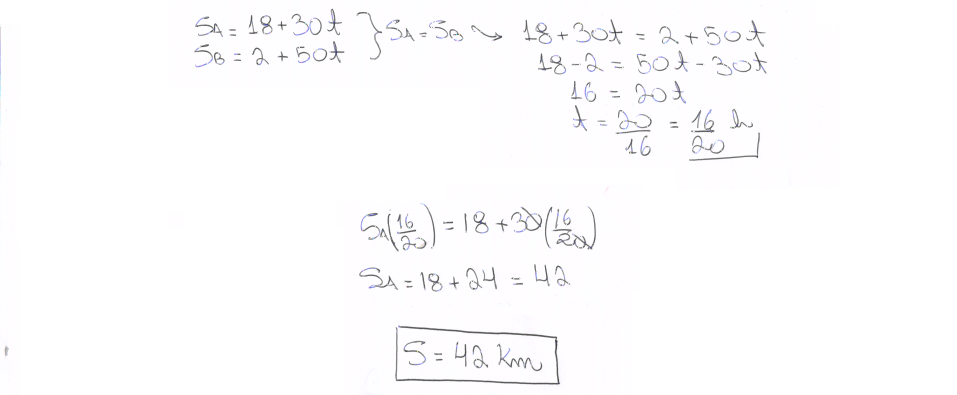 SA = 18 + 30t } SA = SB ↝ 18 + 30t = 2 + 50t
SB = 2 + 50t
18 - 2 = 50t - 30t
16 = 20t
t = 20/16 = 16/20 h
SA(16/20) = 18 + 30(16/20)
SA = 18 + 24 = 42
S = 42 km